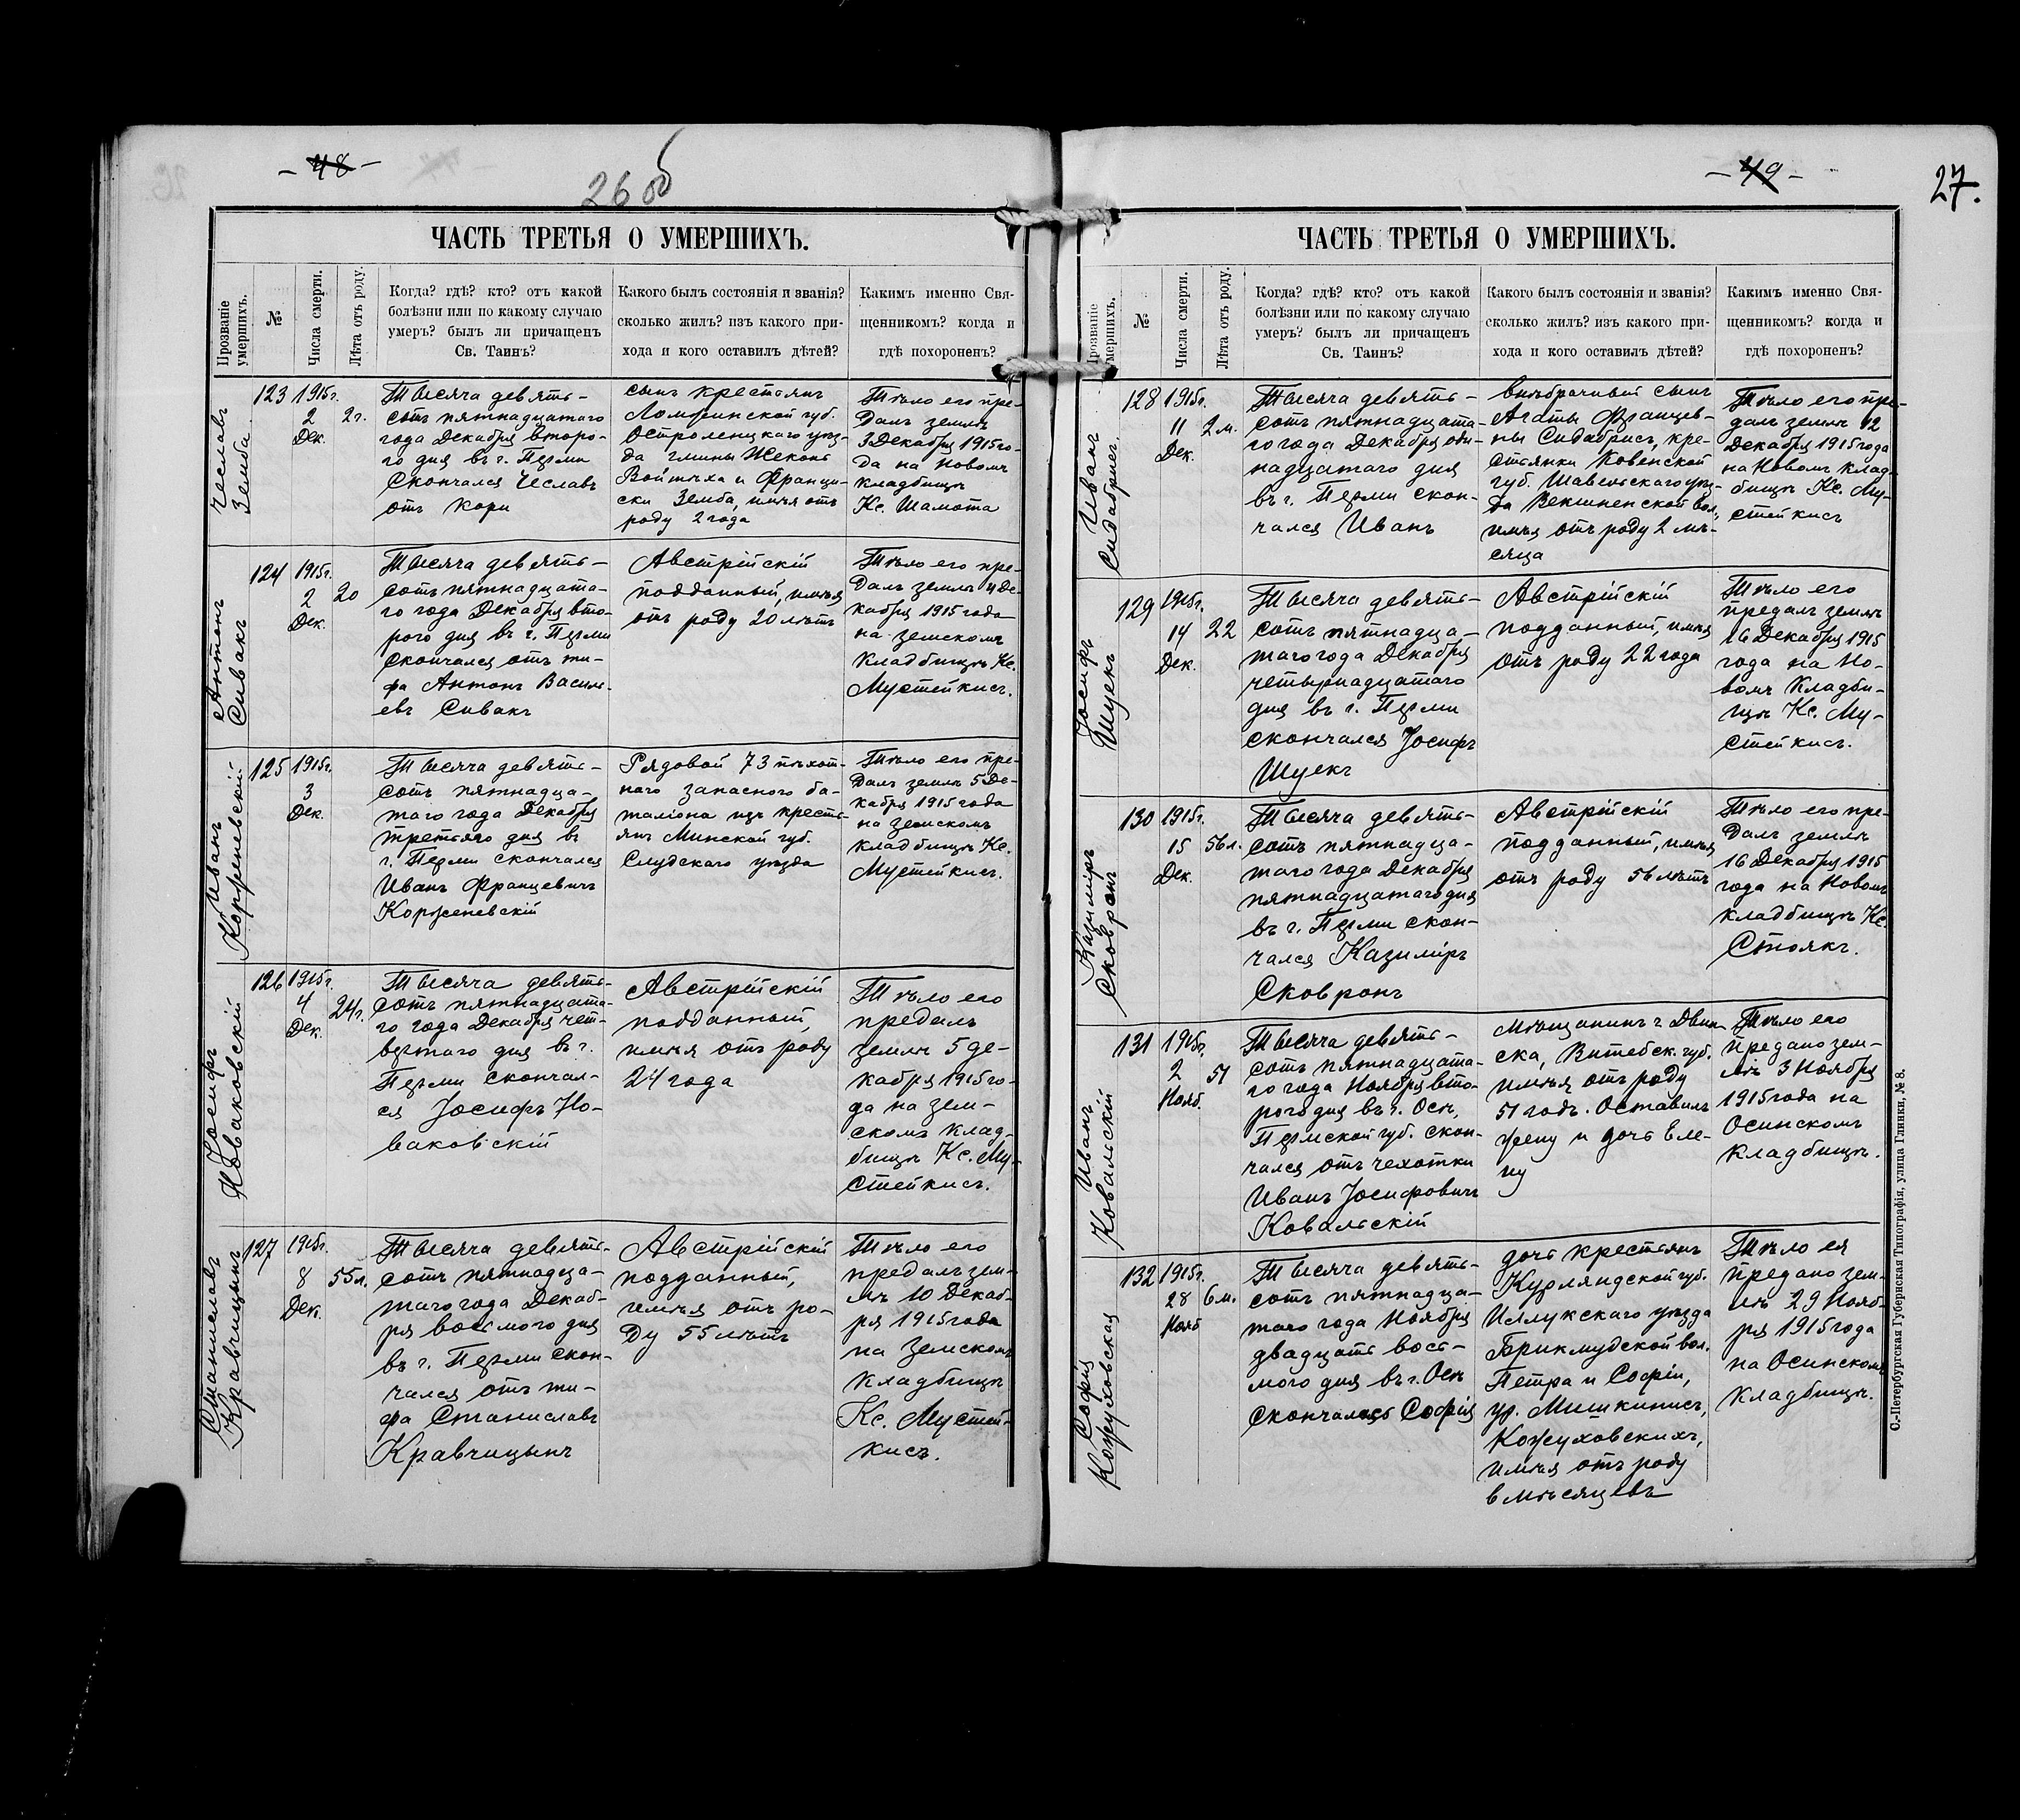 - 48 -
26 об
ЧАСТЬ ТРЕТЬЯ О УМЕРШИХЪ.
Прозваніе умершихъ.
№
Числа смерти.
Лѣта отъ роду.
Когда? гдѣ? кто? отъ какой
болѣзни или по какому случаю
умеръ? былъ ли причащенъ
Св. Таинъ?
Какого былъ состоянія и званія?
сколько жилъ? изъ какого при-
хода и кого оставилъ дѣтей?
Какимъ именно Свя-
щенникомъ? когда и
гдѣ похороненъ?
Чеславъ
Земба.
123
1915г.
2
Дек.
2г.
Тысяча девять-
сотъ пятнадцатаго
года Декабря второ-
го дня въ г. Перми
скончался Чеславъ
отъ кори
сынъ крестьянъ
Ломжинской губ.
Остроленцкаго уѣз-
да гмины Жеконь
Войтѣха и Францы-
ски Земба, имѣя отъ
роду 2 года
Тѣло его пре-
далъ землѣ
3 Декабря 1915 го-
да на Новомъ
кладбищѣ
Кс. Шамота
Антонъ
Сивакъ
124
1915г.
2
Дек.
20
Тысяча девять-
сотъ пятнадцата-
го года Декабря вто-
рого дня въ г. Перми
скончался отъ ти-
фа Антонъ Василь-
евъ Сивакъ
Австрійскій
подданный, имѣя
отъ роду 20 лѣтъ
Тѣло его пре-
далъ землѣ 4 Де-
кабря 1915 года
на земскомъ
кладбищѣ Кс.
Мустейкисъ.
Иванъ
Корженевскій
125
1915г.
3
Дек.
Тысяча девять-
сотъ пятнадца-
таго года Декабря
третьяго дня въ
г. Перми скончался
Иванъ Францевичъ
Корженевскій
Рядовой 73 пѣхот-
наго запаснаго ба-
таліона изъ кресть-
янъ Минской губ.
Слудскаго уѣзда
Тѣло его пре-
далъ землѣ 5 Де-
кабря 1915 года
на земскомъ
кладбищѣ Кс.
Мустейкисъ.
Іосифъ
Новаковскій
126
1915г.
4
Дек.
24г.
Тысяча девять-
сотъ пятнадцата-
го года Декабря чет-
вертаго дня въ г.
Перми скончал-
ся Іосифъ Но-
ваковскій
Австрійскій
подданный,
имѣя отъ роду
24 года
Тѣло его
предалъ
землѣ 5 Де-
кабря 1915 го-
да на зем-
скомъ клад-
бищѣ Кс. Му-
стейкисъ.
Станиславъ
Кравчицынъ
127
1915г.
8
Дек.
55л.
Тысяча девять-
сотъ пятнадца-
таго года Декаб-
ря восьмого дня
въ г. Перми скон-
чался отъ ти-
фа Станиславъ
Кравчицынъ
Австрійскій
подданный,
имѣя отъ ро-
ду 55 лѣтъ
Тѣло его
предалъ зем-
лѣ 10 Декаб-
ря 1915 года
на Земскомъ
кладбищѣ
Кс. Мустей-
кисъ.
- 49 -
27.
ЧАСТЬ ТРЕТЬЯ О УМЕРШИХЪ.
Прозваніе умершихъ.
№
Числа смерти.
Лѣта отъ роду.
Когда? гдѣ? кто? отъ какой
болѣзни или по какому случаю
умеръ? былъ ли причащенъ
Св. Таинъ?
Какого былъ состоянія и званія?
сколько жилъ? изъ какого при-
хода и кого оставилъ дѣтей?
Какимъ именно Свя-
щенникомъ? когда и
гдѣ похороненъ?
Иванъ
Сидабрисъ.
128
1915г.
11
Дек.
2м.
Тысяча девять-
сотъ пятнадцата-
го года Декабря оди-
надцатаго дня
въ г. Перми скон-
чался Иванъ
внѣбрачный сынъ
Агаты Францев-
ны Сидабрисъ, кре-
стьянки Ковенской
губ. Шавельскаго уѣз-
да Векшненской вол.,
имѣя отъ роду 2 мѣ-
сяца
Тѣло его пре-
далъ землѣ 12
Декабря 1915 года
на Новомъ клад-
бищѣ Кс. Му-
стейкисъ
Іосифъ
Шуекъ
129
1915г.
14
Дек.
22
Тысяча девять-
сотъ пятнадца-
таго года Декабря
четырнадцатаго
дня въ г. Перми
скончался Іосифъ
Шуекъ
Австрійскій
подданный, имѣя
отъ роду 22 года
Тѣло его
предалъ землѣ
16 Декабря 1915
года на Но-
вомъ кладби-
щѣ Кс. Му-
стейкисъ.
Казиміръ
Сковронъ
130
1915г.
15
Дек.
56л.
Тысяча девять-
сотъ пятнадца-
таго года Декабря
пятнадцатаго дня
въ г. Перми скон-
чался Казиміръ
Сковронъ
Австрійскій
подданный, имѣя
отъ роду 56 лѣтъ
Тѣло его пре-
далъ землѣ
16 Декабря 1915
года на Новомъ
кладбищѣ Кс.
Стоякъ.
Иванъ
Ковальскій
131
1915г.
2
Нояб.
51
Тысяча девять-
сотъ пятнадцата-
го года Ноября вто-
рого дня въ г. Осѣ,
Пермской губ. скон-
чался отъ чахотки
Иванъ Іосифовичъ
Ковальскій
Мѣщанинъ г. Двин-
ска, Витебск. губ.
имѣя отъ роду
51 годъ. Оставилъ
жену и дочь Еле-
ну
Тѣло его
предано зем-
лѣ 3 Ноября
1915 года на
Осинскомъ
кладбищѣ.
Софія
Кожуховская
132
1915г.
28
Нояб
6м.
Тысяча девять-
сотъ пятнадца-
таго года Ноября
двадцать вось-
мого дня въ г. Осѣ
скончалась Софія
дочь крестьянъ
Курляндской губ.
Иллукскаго уѣзда
Брикмудской вол.
Петра и Софіи,
ур. Мишкинисъ,
Кожуховскихъ,
имѣя отъ роду
6 мѣсяцевъ
Тѣло ея
предано зем-
лѣ 29 Нояб-
ря 1915 года
на Осинскомъ
кладбищѣ.
С.-Петербургская Губернская Типографія, улица Глинки, № 8.